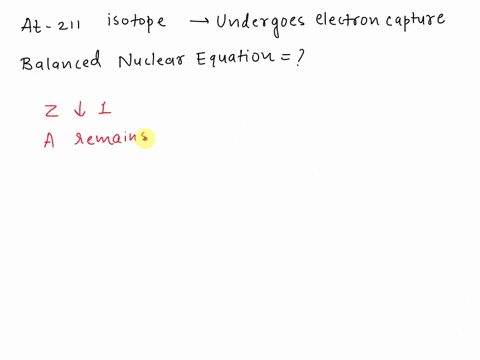 At-211 isotope → Undergoes electron capture
Balanced Nuclear Equation = ?
Z ↓ 1
A remains